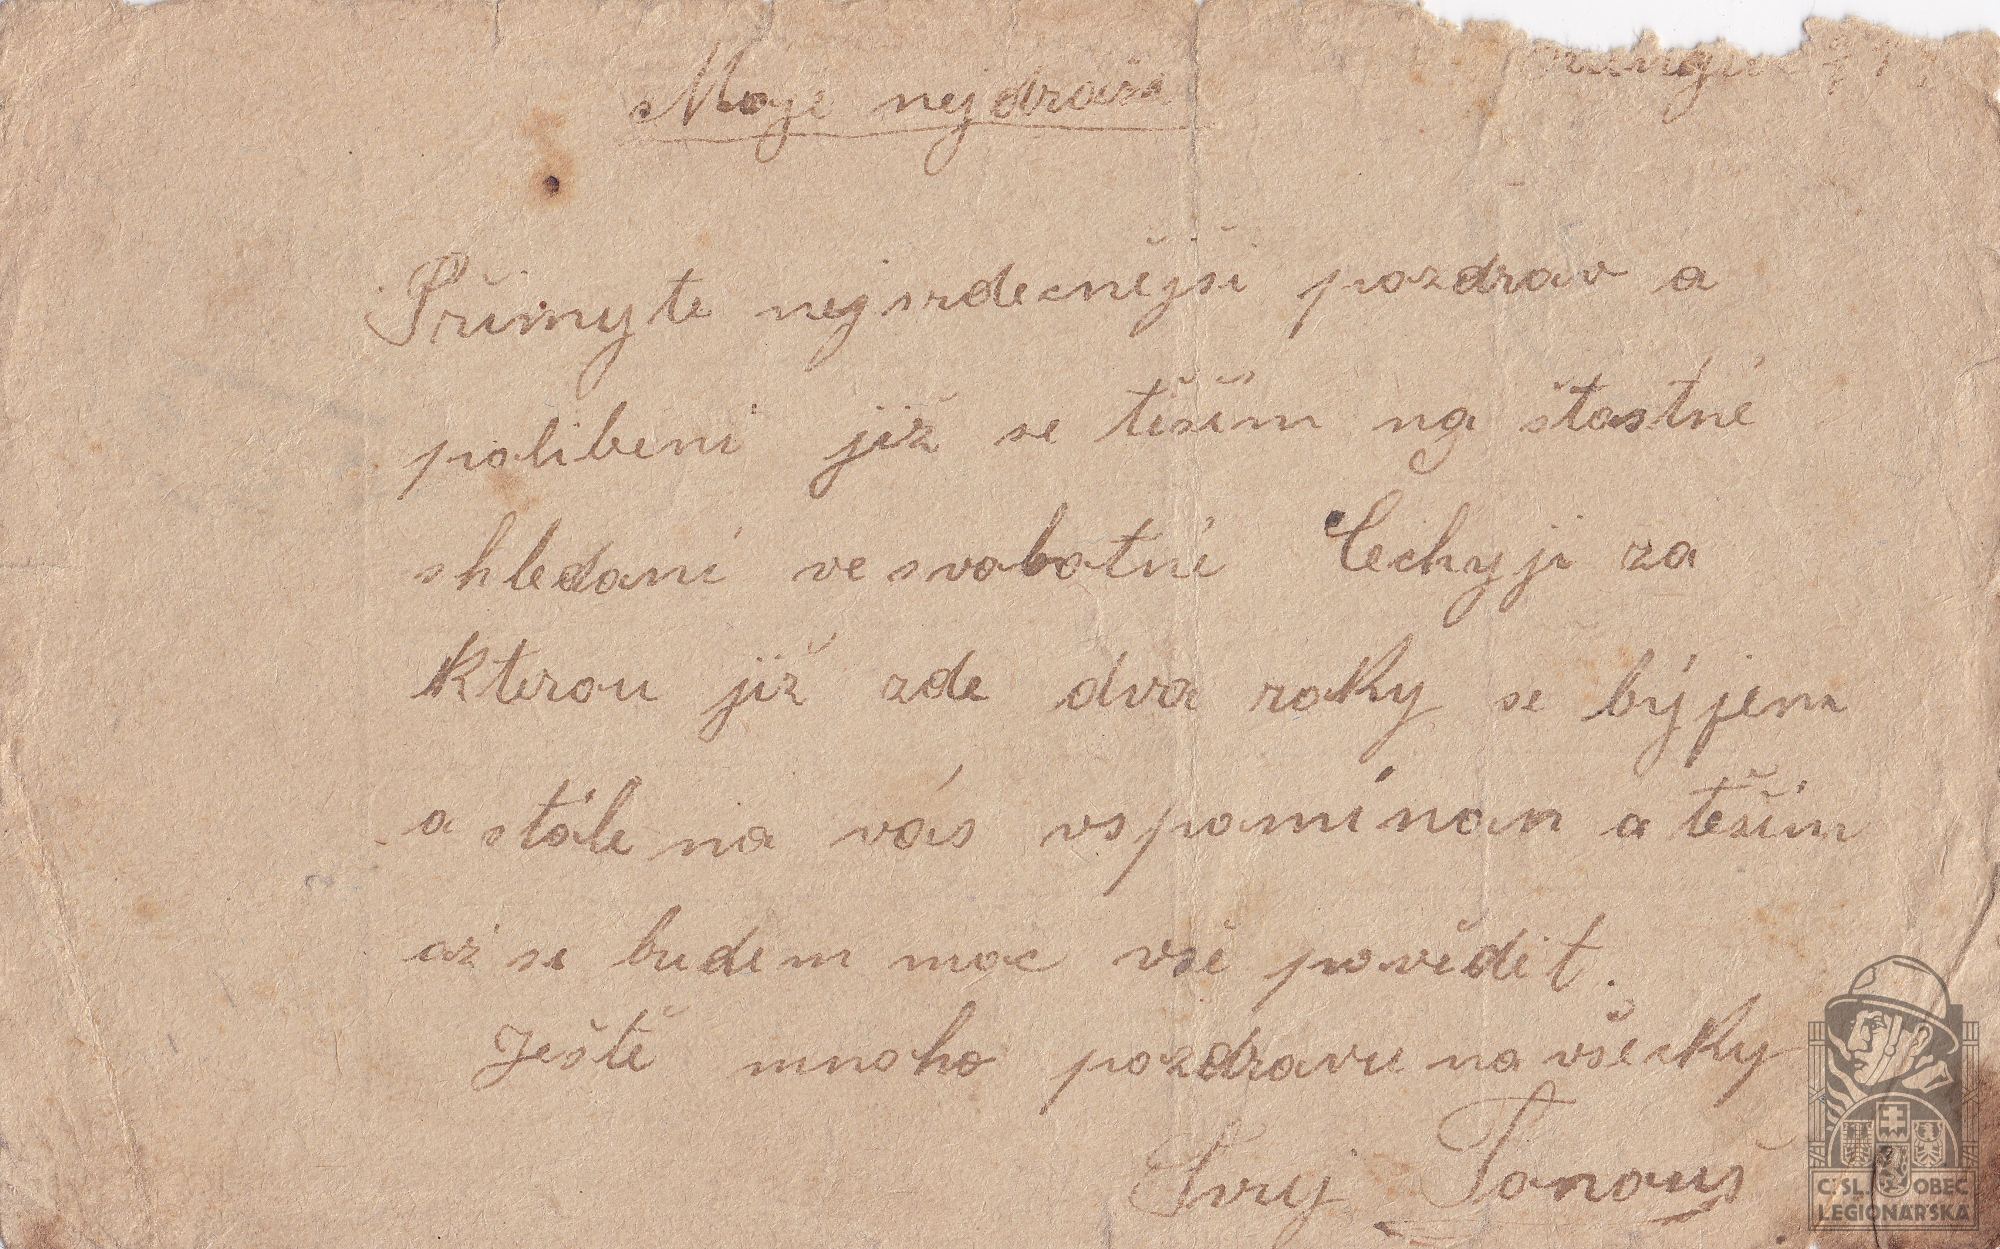 Moje nejdražší
Přimyte nejsrdecnějši pozdrav a
polibeni již se těším na štastné
shledaní ve svobotni Čechyji za
kterou již zde dva roky se býjem
a stále na vás vspomínam a těším
až se budem moc vše povědit.
Ještě mnoho pozdravu na všecky
Tvuj Tonouš
Č. SL. OBEC
LEGIONÁŘSKÁ